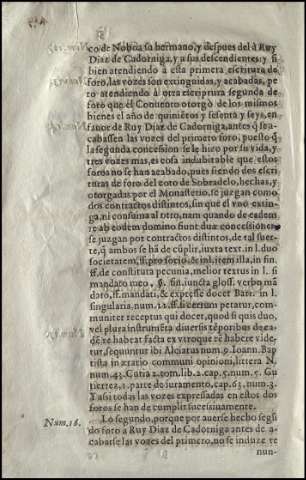 co de Noboa su hermano, y despues del à Ruy
Diaz de Cadorniga, y a sus descendientes, y si
bien atendiendo à esta primera escritura de
foro, las vozes son extinguidas, y acabadas, pe
ro atendiendo à otra escriptura segunda de
foro que el Conuento otorgò de los mismos
bienes el año de quiniẽtos y sesenta y seys, en
fauor de Ruy Diaz de Cadorniga, antes q̃ se a-
cabassen las vozes del primero foro, puesto q̃
la segunda concession se le hizo por su vida, y
tres vozes mas, es cosa indubitable que estos
foros no se han acabado, pues siendo dos escri
turas de foro del coto de Sobradelo, hechas, y
otorgadas por el Monasterio, se juzgan como
dos contractos distintos, sin que el vno extin-
ga, ni consuma al otro, nam quando de eadem
re ab eodem domino fiunt duæ concessiones
se juzgan por contractos distintos, de tal suer-
te, q̃ ambos se hã de cũplir, iuxta text. in l. duo
societatem, ff. pro socio, & in l. item illa, in fin.
ff. de constituta pecunia, melior textus in l. si
mandato meo, §. fin. iuncta gloss. verbo mã
dato, ff. mandati, & expresse docet Bart. in l.
singularia, num. 12. ff. si certum petatur, com-
muniter receptus qui docet, quod si quis duo,
vel plura instrumẽta diuersis tẽporibus de ea-
dẽ re habeat facta ex vtroque rẽ habere vide-
tur, sequuntur ibi Alciatus num. 9. Ioann. Bap
tista in tractatu communi opinion, littera N.
num. 43. Costa 2. tom. lib. 2. cap. 5. num. 5. Gu
tierrez 1. parte de juramento, cap. 63. num. 3.
Y assi todas las vozes expressadas en estos dos
foros se han de cumplir sucessiuamente.
Num. 16. Lo segundo, porque por auerse hecho segũ
do foro a Ruy Diaz de Cadorniga antes de a-
cabarse las vozes del primero, no se induze re
nun-